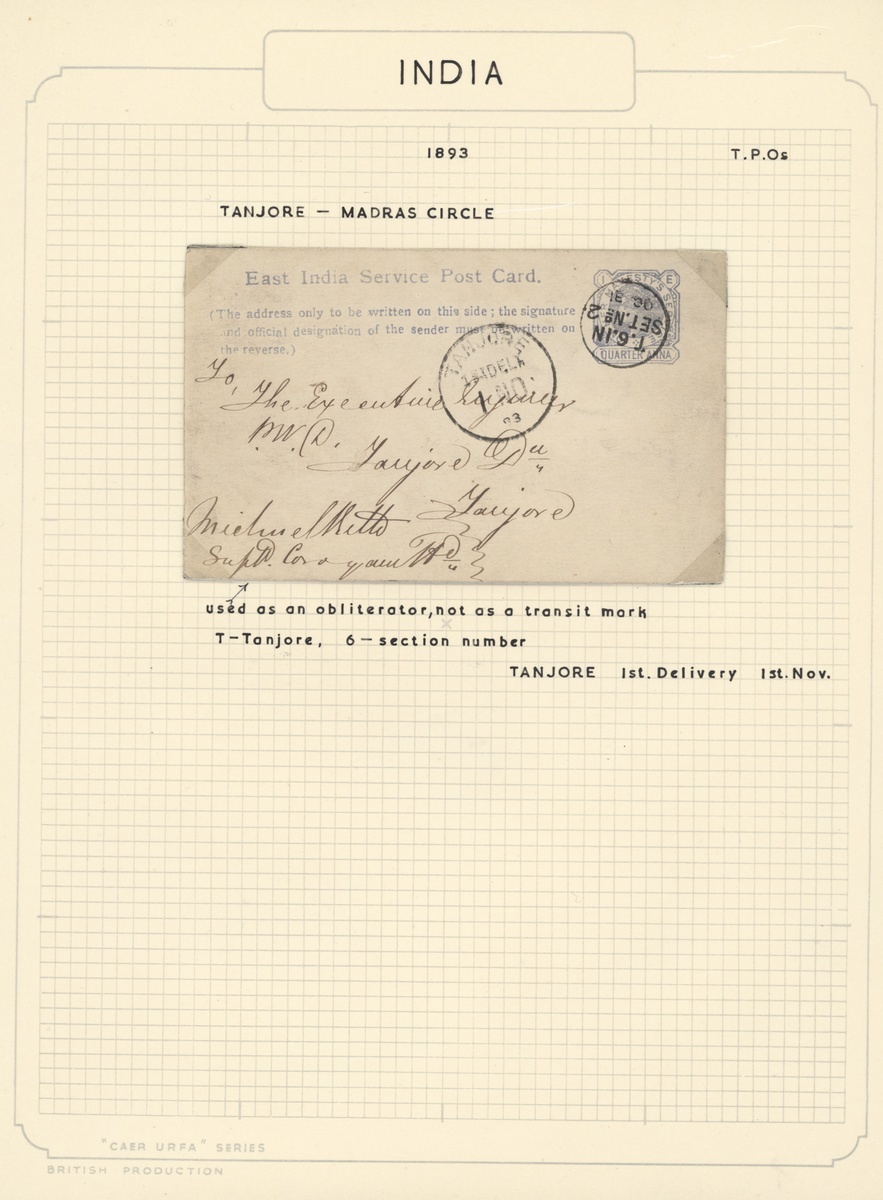 INDIA
1893
T.P.Os
TANJORE — MADRAS CIRCLE
East India Service Post Card.
(The address only to be written on this side; the signature
and official designation of the sender must be written on
the reverse.)
QUARTER ANNA
T.6.IN
SET.No 2
OC 31
TANJORE
1st DELY
1 NO
93
To,
The Executive Engineer
P.W.D.
Tanjore Dn
Tanjore
Michael
Supdt.
used as an obliterator, not as a transit mark
T-Tanjore, 6 — section number
TANJORE 1st. Delivery 1st. Nov.
"CAER URFA" SERIES
BRITISH PRODUCTION